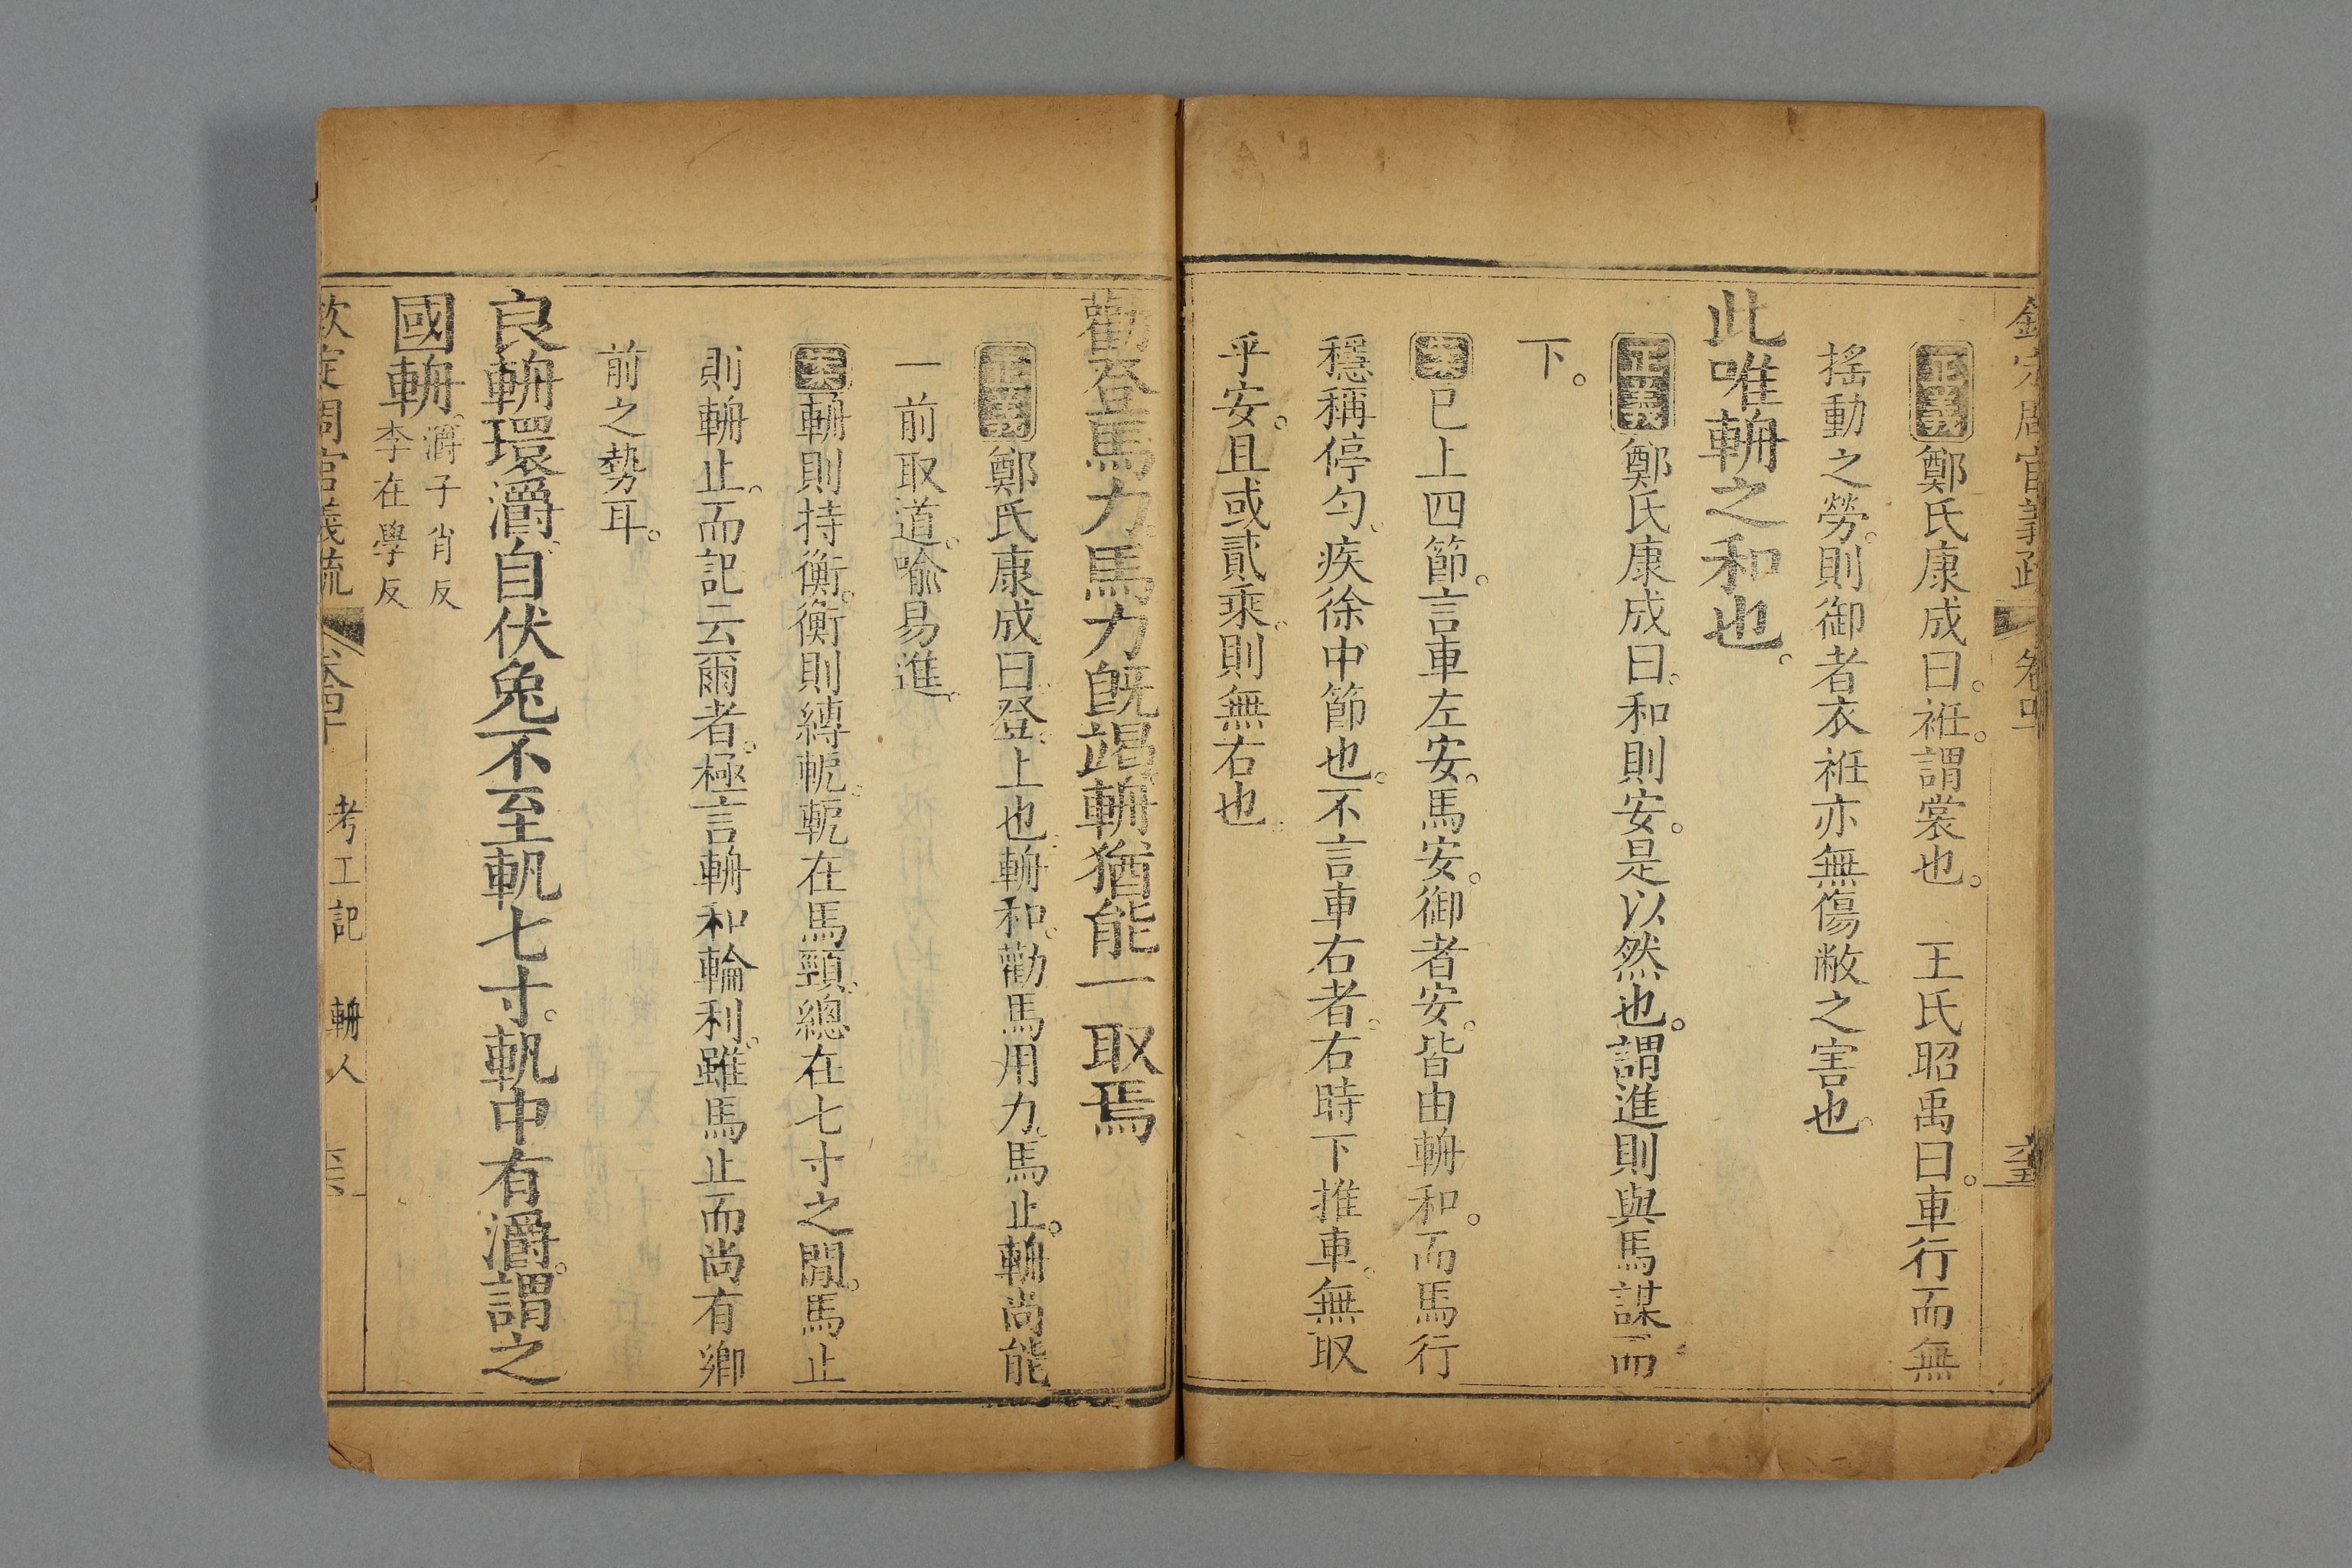 欽定周官義疏 卷四十 六十五
正義鄭氏康成曰。衽。謂裳也。 王氏昭禹曰。車行而無
搖動之勞。則御者衣衽亦無傷敝之害也。
此唯輈之和也。
正義鄭氏康成曰。和則安。是以然也。謂進則與馬謀而
下。
案已上四節。言車左安。馬安。御者安。皆由輈和。而馬行
穩稱停勻。疾徐中節也。不言車右者。右時下推車。無取
乎安。且或貳乘。則無右也。
勸登馬力馬力旣竭輈猶能一取焉
正義鄭氏康成曰。登。上也。輈和。勸馬用力。馬止。輈尚能
一前取道。喻易進。
案輈則持衡。衡則縛軛。軛在馬頸。總在七寸之閒。馬止
則輈止。而記云爾者。極言輈和輪利。雖馬止而尚有鄉
前之勢耳。
良輈環灂。自伏兔不至軓七寸。軓中有灂。謂之
國輈。灂子肖反
李在學反
欽定周官義疏 卷四十 考工記 輈人